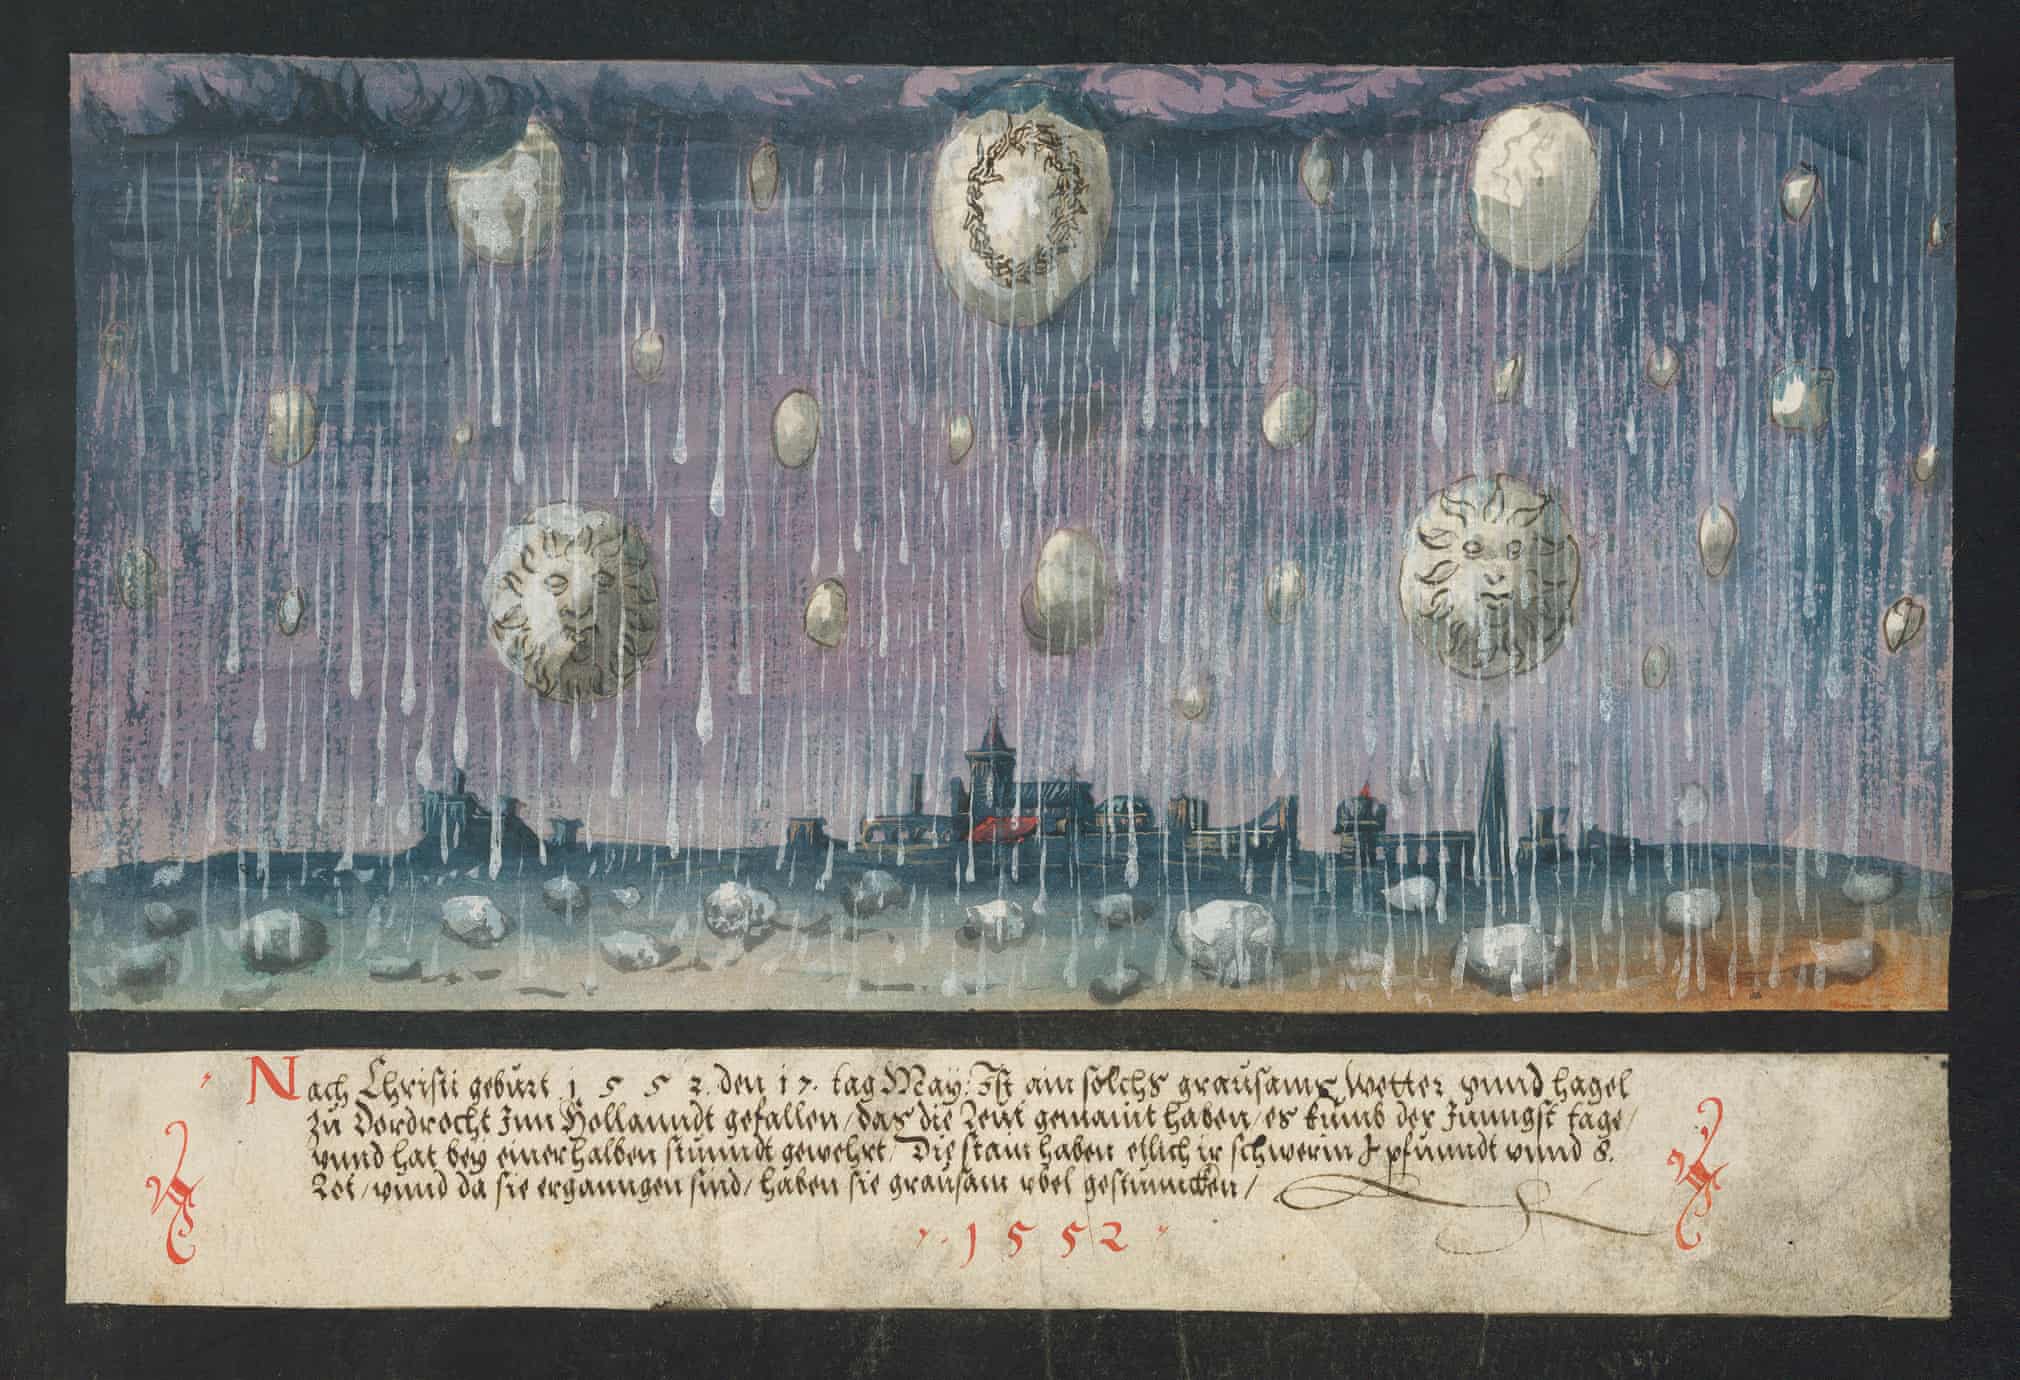 Nach Christi geburt 1 5 5 2. den 17. tag May. Ist ain solchs grausams wetter vnnd hagel
zu Dordrecht Inn Hollanndt gefallen / das die Leut gemaint haben / es kumb der Jungst tage /
vnnd hat bey einer halben stunndt gewehrt / Die stain haben etlich ir schwerin I pfunndt vnnd 8.
Lot / vnnd da sie erganngen sind / haben sie grausam vbel gestunncken /
1 5 5 2